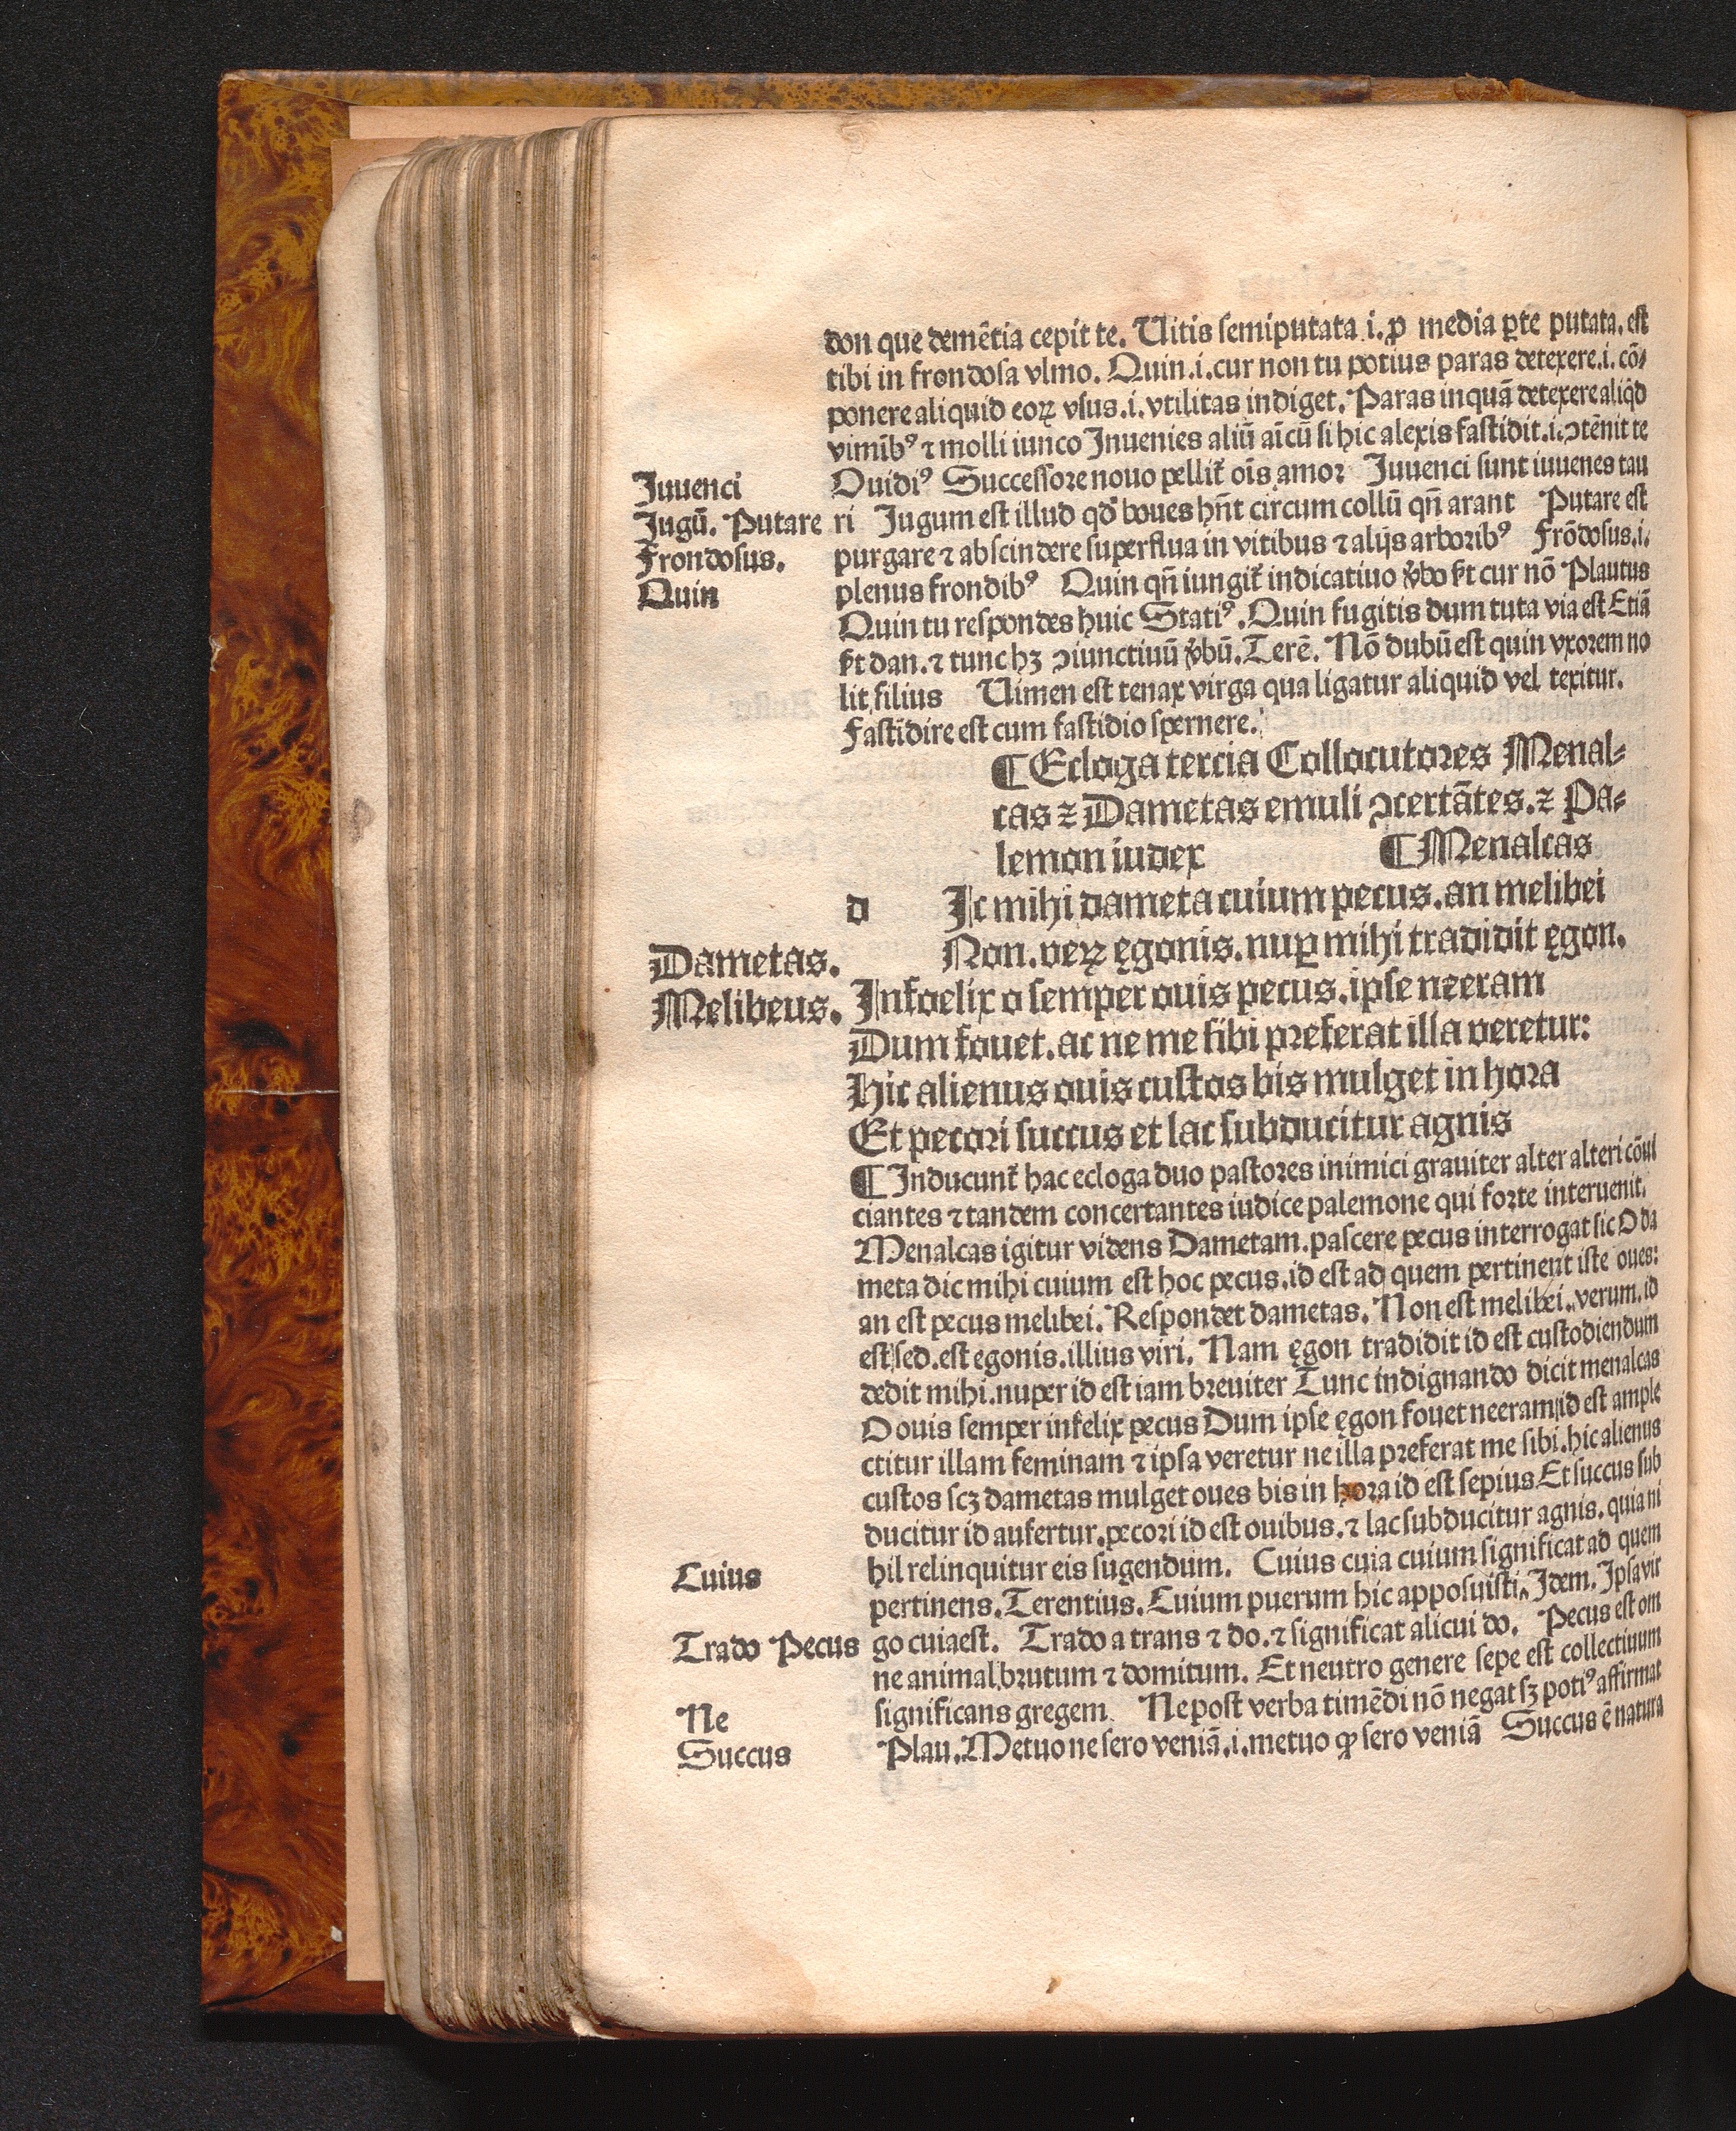 don que demētia cepit te. Uitis semiputata .i. ꝓ media ꝑte putata. est
tibi in frondosa vlmo. Quin .i. cur non tu potius paras detexere .i. cō-
ponere aliquid eoꝝ vsus .i. vtilitas indiget. Paras inquā detexere aliq̄d
vimīb⁹ ⁊ molli iunco Inuenies aliū aīcū si hic alexis fastidit .i. ↄtēnit te
Iuuenci Ouidi⁹ Successore nouo pellit̄ oīs amor Iuuenci sunt iuuenes tau
Iugū. Putare ri Iugum est illud qd̄ boues hn̄t circum collū qn̄ arant Putare est
Frondosus. purgare ⁊ abscindere superflua in vitibus ⁊ alijs arborib⁹ Frōdosus .i.
Quin plenus frondib⁹ Quin qn̄ iungit̄ indicatiuo v̄bo st̄ cur nō Plautus
Quin tu respondes huic Stati⁹. Quin fugitis dum tuta via est Etiā
st̄ dan. ⁊ tunc hꝫ ↄiunctiuū v̄bū. Terē. Nō dubū est quin vxorem no
lit filius Uimen est tenax virga qua ligatur aliquid vel texitur.
Fastidire est cum fastidio spernere.
¶ Ecloga tercia Collocutores Menal-
cas ⁊ Dametas emuli ↄcertātes. ⁊ Pa-
lemon iudex ¶ Menalcas
d Ic mihi dameta cuium pecus. an melibei
Dametas. Non. veꝝ ęgonis. nuꝑ mihi tradidit ęgon.
Melibeus. Infoelix o semper ouis pecus. ipse neeram
Dum fouet. ac ne me sibi preferat illa veretur:
Hic alienus ouis custos bis mulget in hora
Et pecori succus et lac subducitur agnis
¶ Inducunt̄ hac ecloga duo pastores inimici grauiter alter alteri cōui
ciantes ⁊ tandem concertantes iudice palemone qui forte interuenit.
Menalcas igitur videns Dametam. pascere pecus interrogat sic O da
meta dic mihi cuium est hoc pecus. id est ad quem pertinent iste oues:
an est pecus melibei. Respondet dametas. Non est melibei. verum. id
est sed. est egonis. illius viri. Nam ęgon tradidit id est custodiendum
dedit mihi. nuper id est iam breuiter Tunc indignando dicit menalcas
O ouis semper infelix pecus Dum ipse ęgon fouet neeram id est ample
ctitur illam feminam ⁊ ipsa veretur ne illa preferat me sibi. hic alienus
custos scꝫ dametas mulget oues bis in hora id est sepius Et succus sub
ducitur id aufertur. pecori id est ouibus. ⁊ lac subducitur agnis. quia ni
Cuius hil relinquitur eis sugendum. Cuius cuia cuium significat ad quem
pertinens. Terentius. Cuium puerum hic apposuisti. Idem. Ipsa vir
Trado Pecus go cuia est. Trado a trans ⁊ do. ⁊ significat alicui do. Pecus est om
ne animal brutum ⁊ domitum. Et neutro genere sepe est collectiuum
Ne significans gregem Ne post verba timēdi nō negat sꝫ poti⁹ affirmat
Succus Plau. Metuo ne sero veniā .i. metuo ꝙ sero veniā Succus ē natura